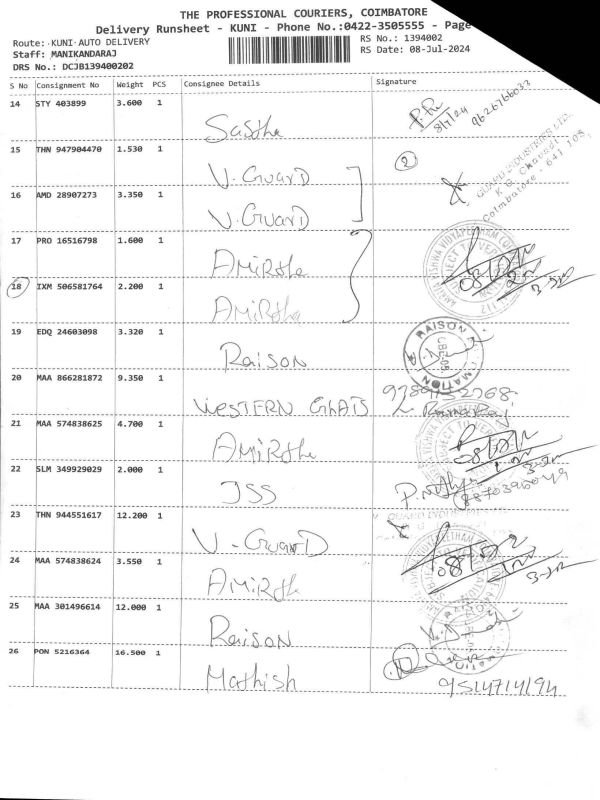 THE PROFESSIONAL COURIERS, COIMBATORE
Delivery Runsheet - KUNI - Phone No.:0422-3505555 - Page
Route: KUNI AUTO DELIVERY RS No.: 1394002
Staff: MANIKANDARAJ RS Date: 08-Jul-2024
DRS No.: DCJB139400202
S No Consignment No Weight PCS Consignee Details Signature
14 STY 403899 3.600 1 Sastha 8/7/24 9626766033
15 THN 947904470 1.530 1 V. Guard 2
16 AMD 28907273 3.350 1 V. Guard
17 PRO 16516798 1.600 1 Amirtha
18 IXM 506581764 2.200 1 Amirtha
19 EDQ 24603098 3.320 1 Raison RAISON
20 MAA 866281872 9.350 1 WESTERN GHATS
21 MAA 574838625 4.700 1 Amirtha
22 SLM 349929029 2.000 1 JSS
23 THN 944551617 12.200 1 V. Guard
24 MAA 574838624 3.550 1 Amirtha
25 MAA 301496614 12.000 1 Raison
26 PON 5216364 16.500 1 Mathish 9514714194